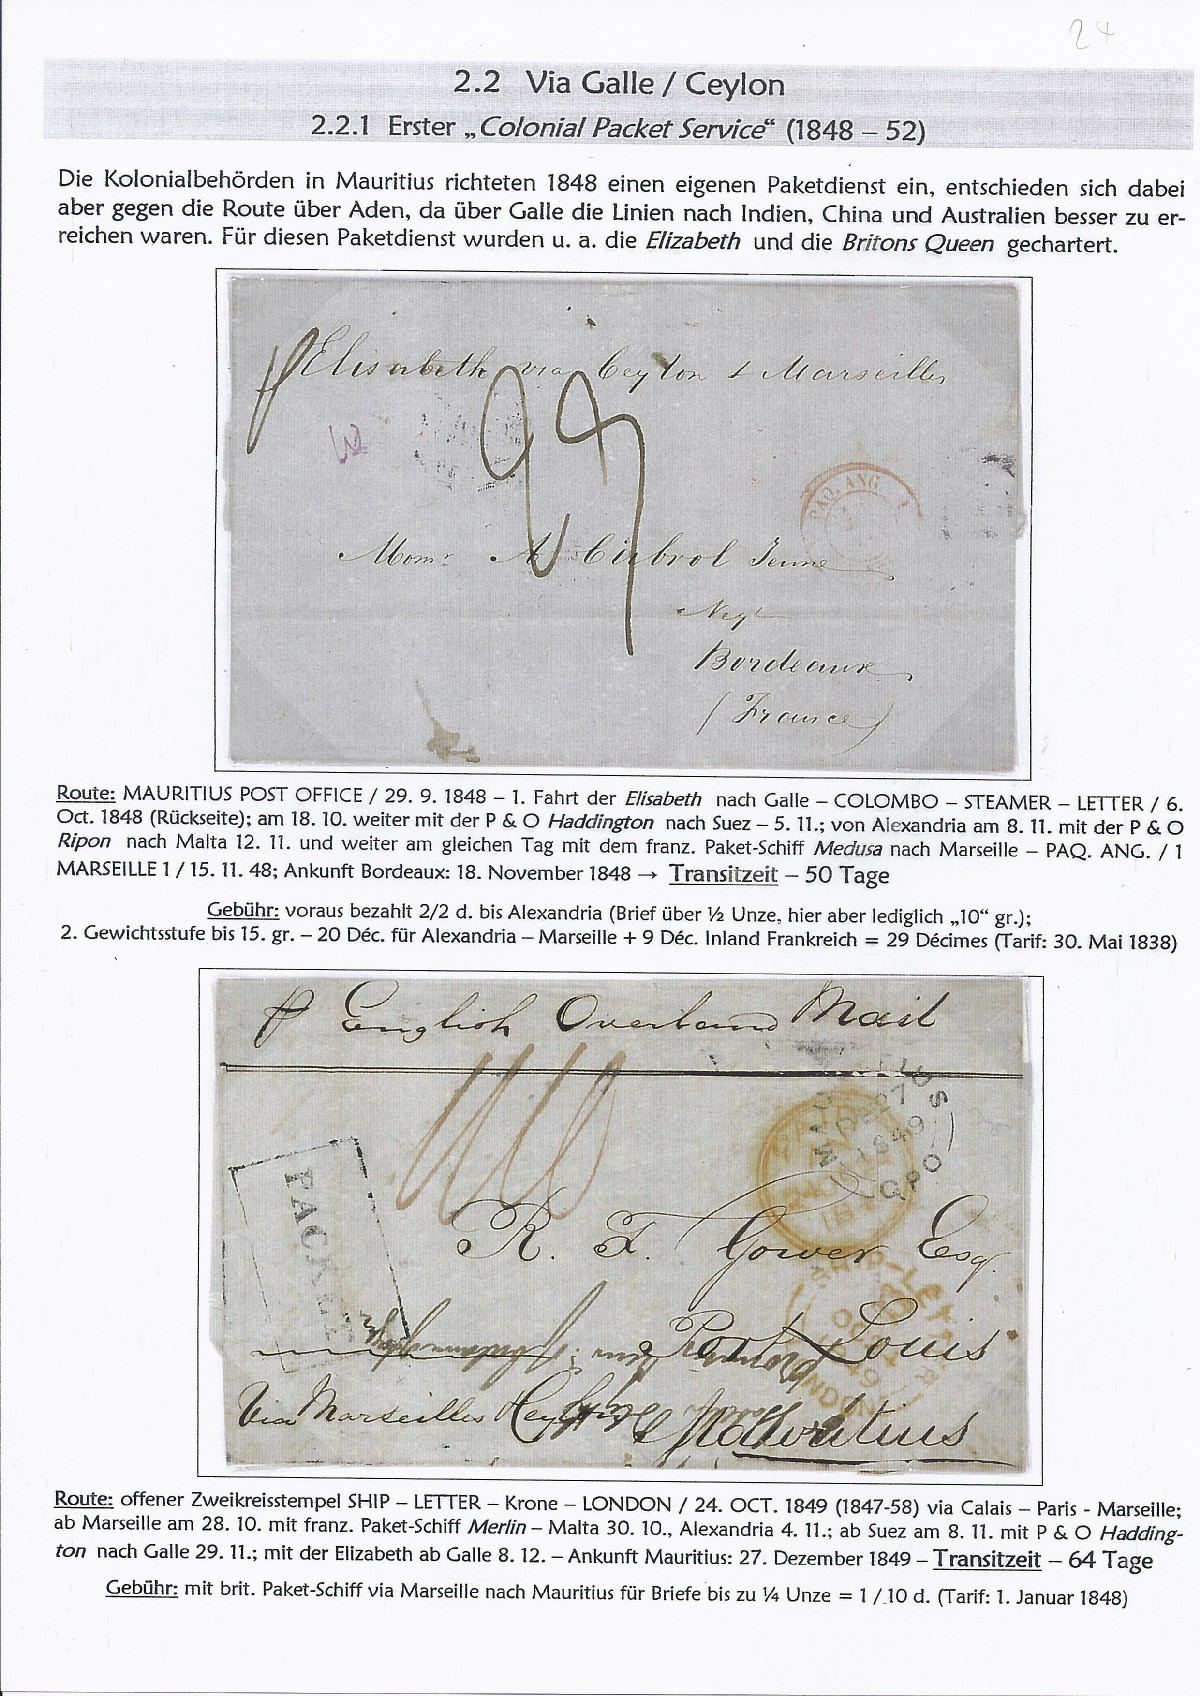 24
2.2 Via Galle / Ceylon
2.2.1 Erster „Colonial Packet Service“ (1848 – 52)
Die Kolonialbehörden in Mauritius richteten 1848 einen eigenen Paketdienst ein, entschieden sich dabei
aber gegen die Route über Aden, da über Galle die Linien nach Indien, China und Australien besser zu er-
reichen waren. Für diesen Paketdienst wurden u. a. die Elizabeth und die Britons Queen gechartert.
p Elisabeth via Ceylon & Marseilles
PAQ. ANG
Monsr A
Negt
Bordeaux
(France)
Route: MAURITIUS POST OFFICE / 29. 9. 1848 – 1. Fahrt der Elisabeth nach Galle – COLOMBO – STEAMER – LETTER / 6.
Oct. 1848 (Rückseite); am 18. 10. weiter mit der P & O Haddington nach Suez – 5. 11.; von Alexandria am 8. 11. mit der P & O
Ripon nach Malta 12. 11. und weiter am gleichen Tag mit dem franz. Paket-Schiff Medusa nach Marseille – PAQ. ANG. / 1
MARSEILLE 1 / 15. 11. 48; Ankunft Bordeaux: 18. November 1848 → Transitzeit – 50 Tage
Gebühr: voraus bezahlt 2/2 d. bis Alexandria (Brief über ½ Unze, hier aber lediglich „10“ gr.);
2. Gewichtsstufe bis 15. gr. – 20 Déc. für Alexandria – Marseille + 9 Déc. Inland Frankreich = 29 Décimes (Tarif: 30. Mai 1838)
p English Overland Mail
MAURITIUS
DE 27
1849
GPO
PACKET
R. F. Gower Esq.
SHIP-LETTER
OC 24
49
LONDON
Port Louis
Via Marseilles
Mauritius
Route: offener Zweikreisstempel SHIP – LETTER – Krone – LONDON / 24. OCT. 1849 (1847-58) via Calais – Paris - Marseille;
ab Marseille am 28. 10. mit franz. Paket-Schiff Merlin – Malta 30. 10., Alexandria 4. 11.; ab Suez am 8. 11. mit P & O Hadding-
ton nach Galle 29. 11.; mit der Elizabeth ab Galle 8. 12. – Ankunft Mauritius: 27. Dezember 1849 – Transitzeit – 64 Tage
Gebühr: mit brit. Paket-Schiff via Marseille nach Mauritius für Briefe bis zu ¼ Unze = 1 / 10 d. (Tarif: 1. Januar 1848)